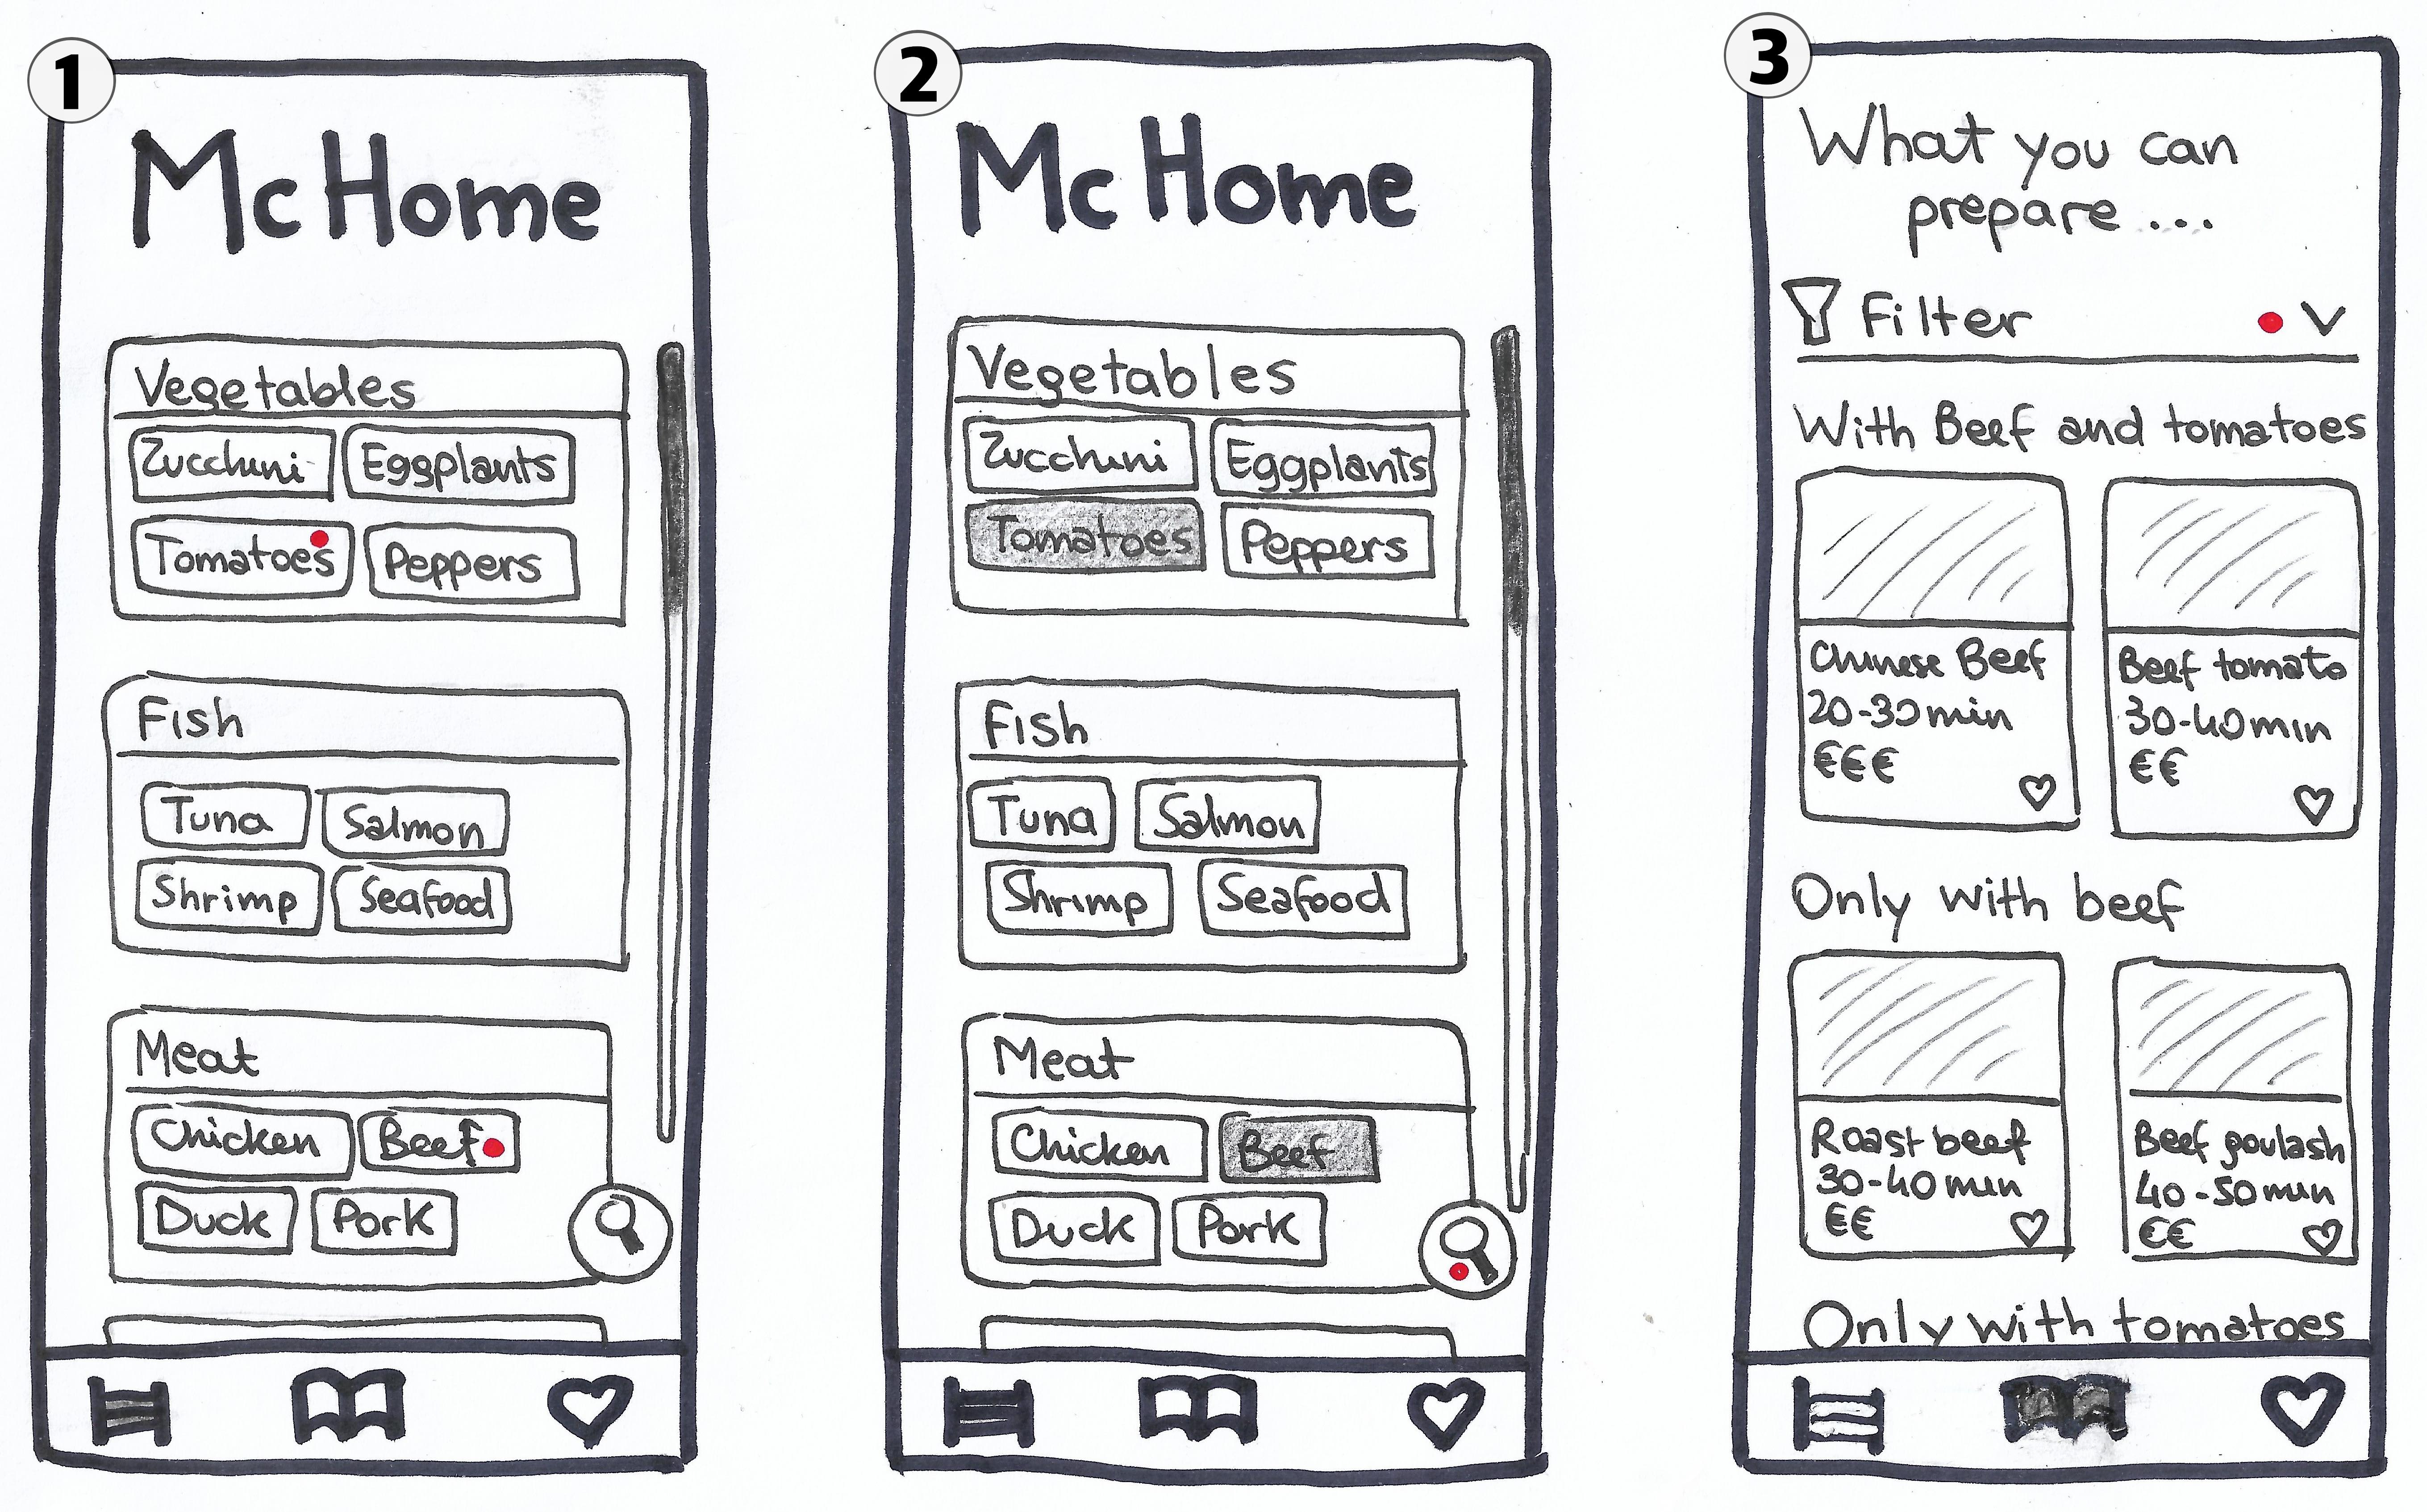 1
Mc Home
Vegetables
Zucchini Eggplants
Tomatoes Peppers
Fish
Tuna Salmon
Shrimp Seafood
Meat
Chicken Beef
Duck Pork
2
Mc Home
Vegetables
Zucchini Eggplants
Tomatoes Peppers
Fish
Tuna Salmon
Shrimp Seafood
Meat
Chicken Beef
Duck Pork
3
What you can
prepare ...
Filter
With Beef and tomatoes
Chinese Beef
20-30 min
€€€
Beef tomato
30-40 min
€€
Only with beef
Roast beef
30-40 min
€€
Beef goulash
40-50 min
€€
Only with tomatoes